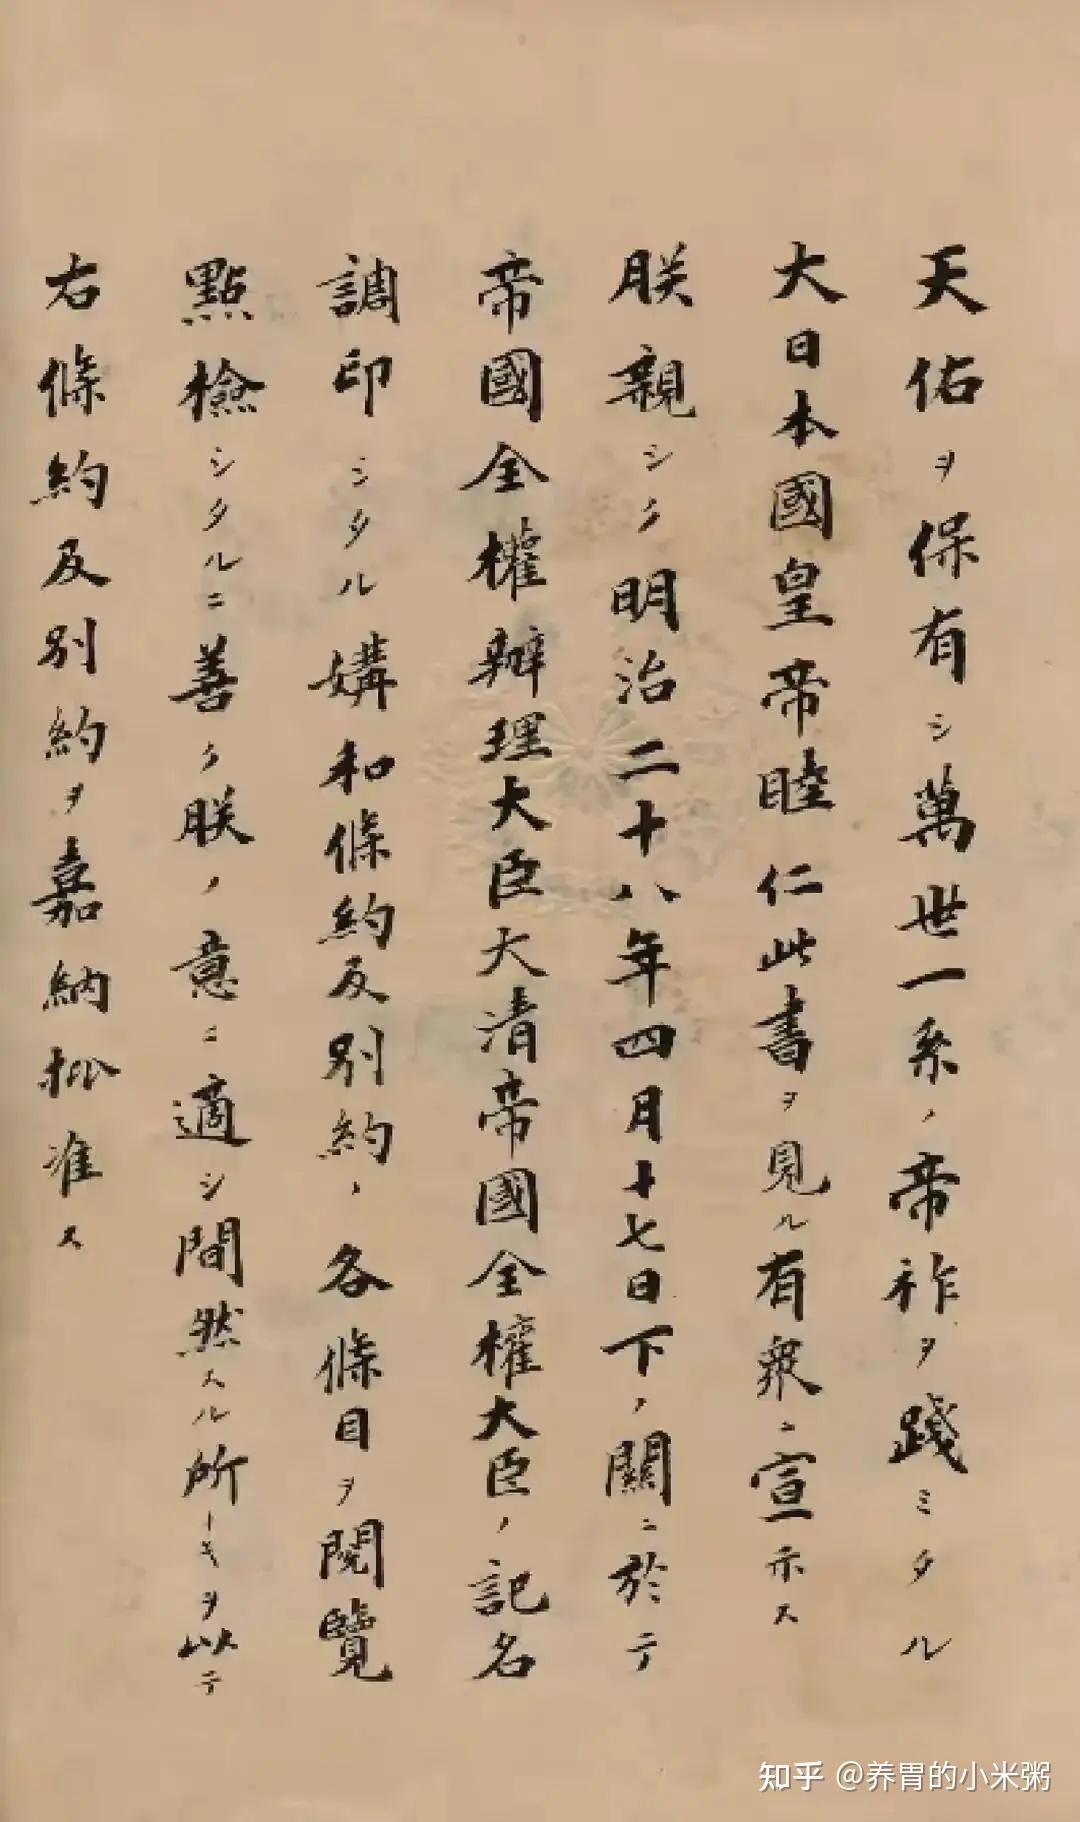 天佑ヲ保有シ萬世一系ノ帝祚ヲ踐ミタル
大日本國皇帝睦仁此書ヲ見ル有衆ニ宣示ス
朕親シク明治二十八年四月十七日下ノ關ニ於テ
帝國全權辦理大臣大清帝國全權大臣ノ記名
調印シタル媾和條約及別約ノ各條目ヲ閱覽
點檢シタルニ善ク朕ノ意ニ適シ間然スル所ナキヲ以テ
右條約及別約ヲ嘉納批准ス
知乎 @养胃的小米粥